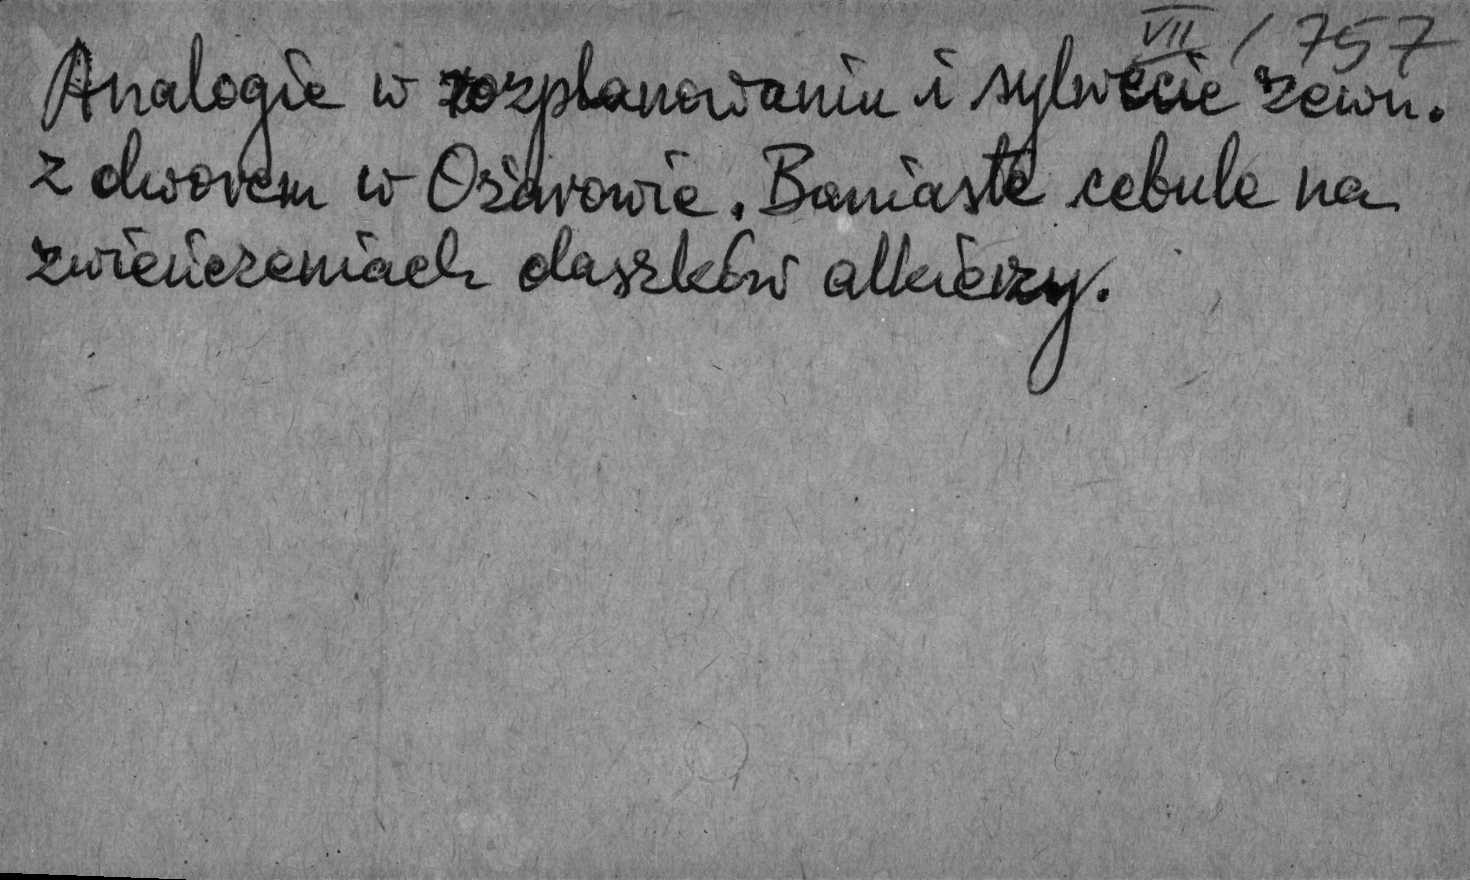 VII / 757
Analogie w rozplanowaniu i sylwecie zewn.
z dworem w Ożarowie. Baniaste cebule na
zwieńczeniach daszków alkierzy.